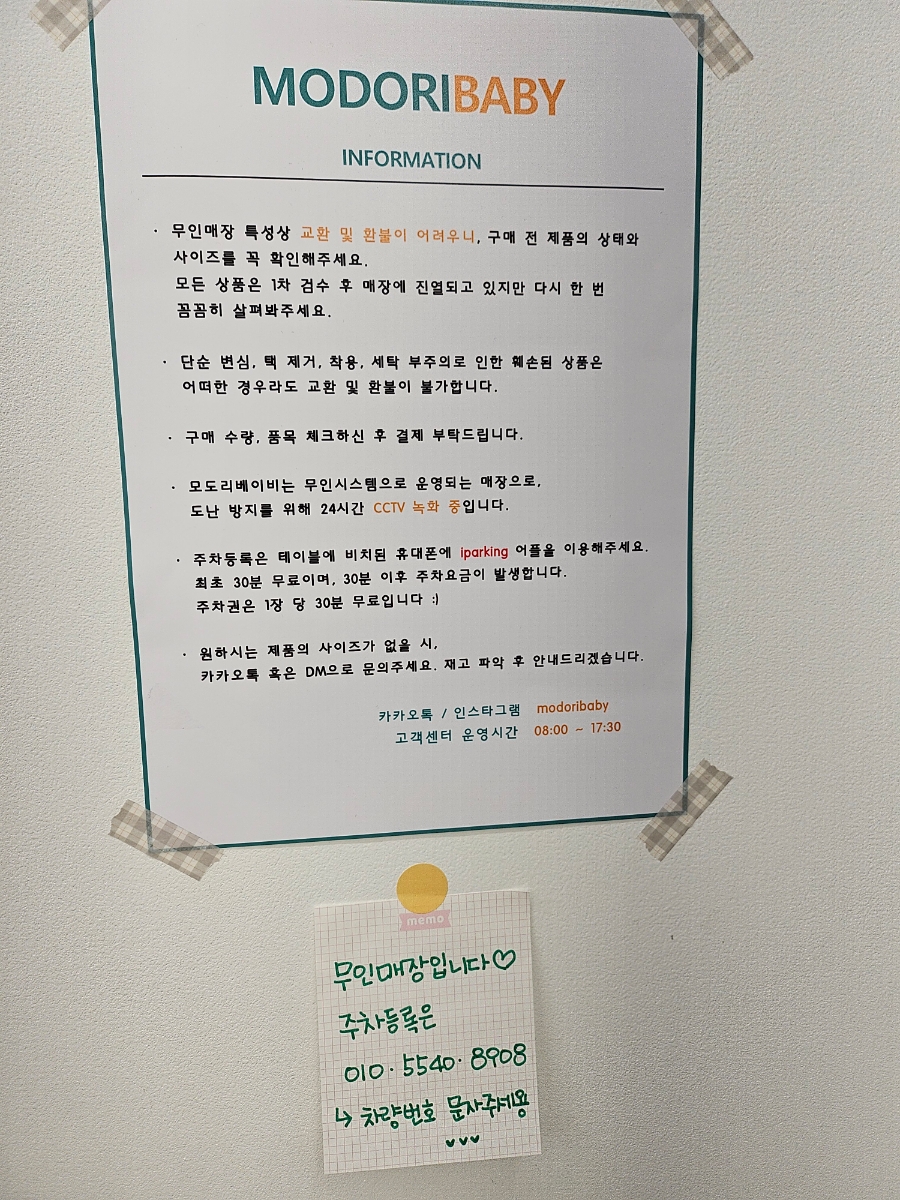 MODORIBABY
INFORMATION
· 무인매장 특성상 교환 및 환불이 어려우니, 구매 전 제품의 상태와
사이즈를 꼭 확인해주세요.
모든 상품은 1차 검수 후 매장에 진열되고 있지만 다시 한 번
꼼꼼히 살펴봐주세요.
· 단순 변심, 택 제거, 착용, 세탁 부주의로 인한 훼손된 상품은
어떠한 경우라도 교환 및 환불이 불가합니다.
· 구매 수량, 품목 체크하신 후 결제 부탁드립니다.
· 모도리베이비는 무인시스템으로 운영되는 매장으로,
도난 방지를 위해 24시간 CCTV 녹화 중입니다.
· 주차등록은 테이블에 비치된 휴대폰에 iparking 어플을 이용해주세요.
최초 30분 무료이며, 30분 이후 주차요금이 발생합니다.
주차권은 1장 당 30분 무료입니다 :)
· 원하시는 제품의 사이즈가 없을 시,
카카오톡 혹은 DM으로 문의주세요. 재고 파악 후 안내드리겠습니다.
카카오톡 / 인스타그램 modoribaby
고객센터 운영시간 08:00 ~ 17:30
memo
무인매장입니다♡
주차등록은
010·5540·8908
↳ 차량번호 문자주세용
♥♥♥